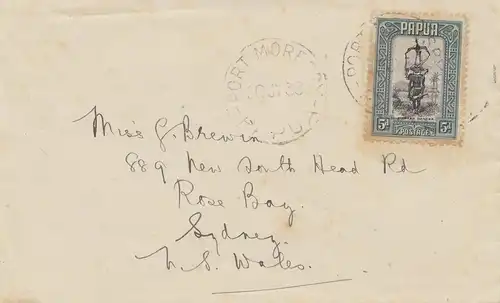 PAPUA
5d 5d
POSTAGE
PORT MORESBY
Miss G. Brewin
889 New South Head Rd
Rose Bay.
Sydney.
N. S. Wales.